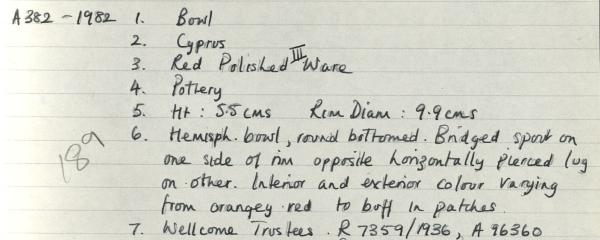 A382-1982 1. Bowl
2. Cyprus
3. Red Polished III Ware
4. Pottery
5. Ht : 5.5 cms Rim Diam : 9.9 cms
6. Hemisph. bowl, round bottomed. Bridged spout on
189
one side of rim opposite horizontally pierced lug
on other. Interior and exterior colour varying
from orangey-red to buff in patches
7. Wellcome Trustees. R 7359/1936, A 96360